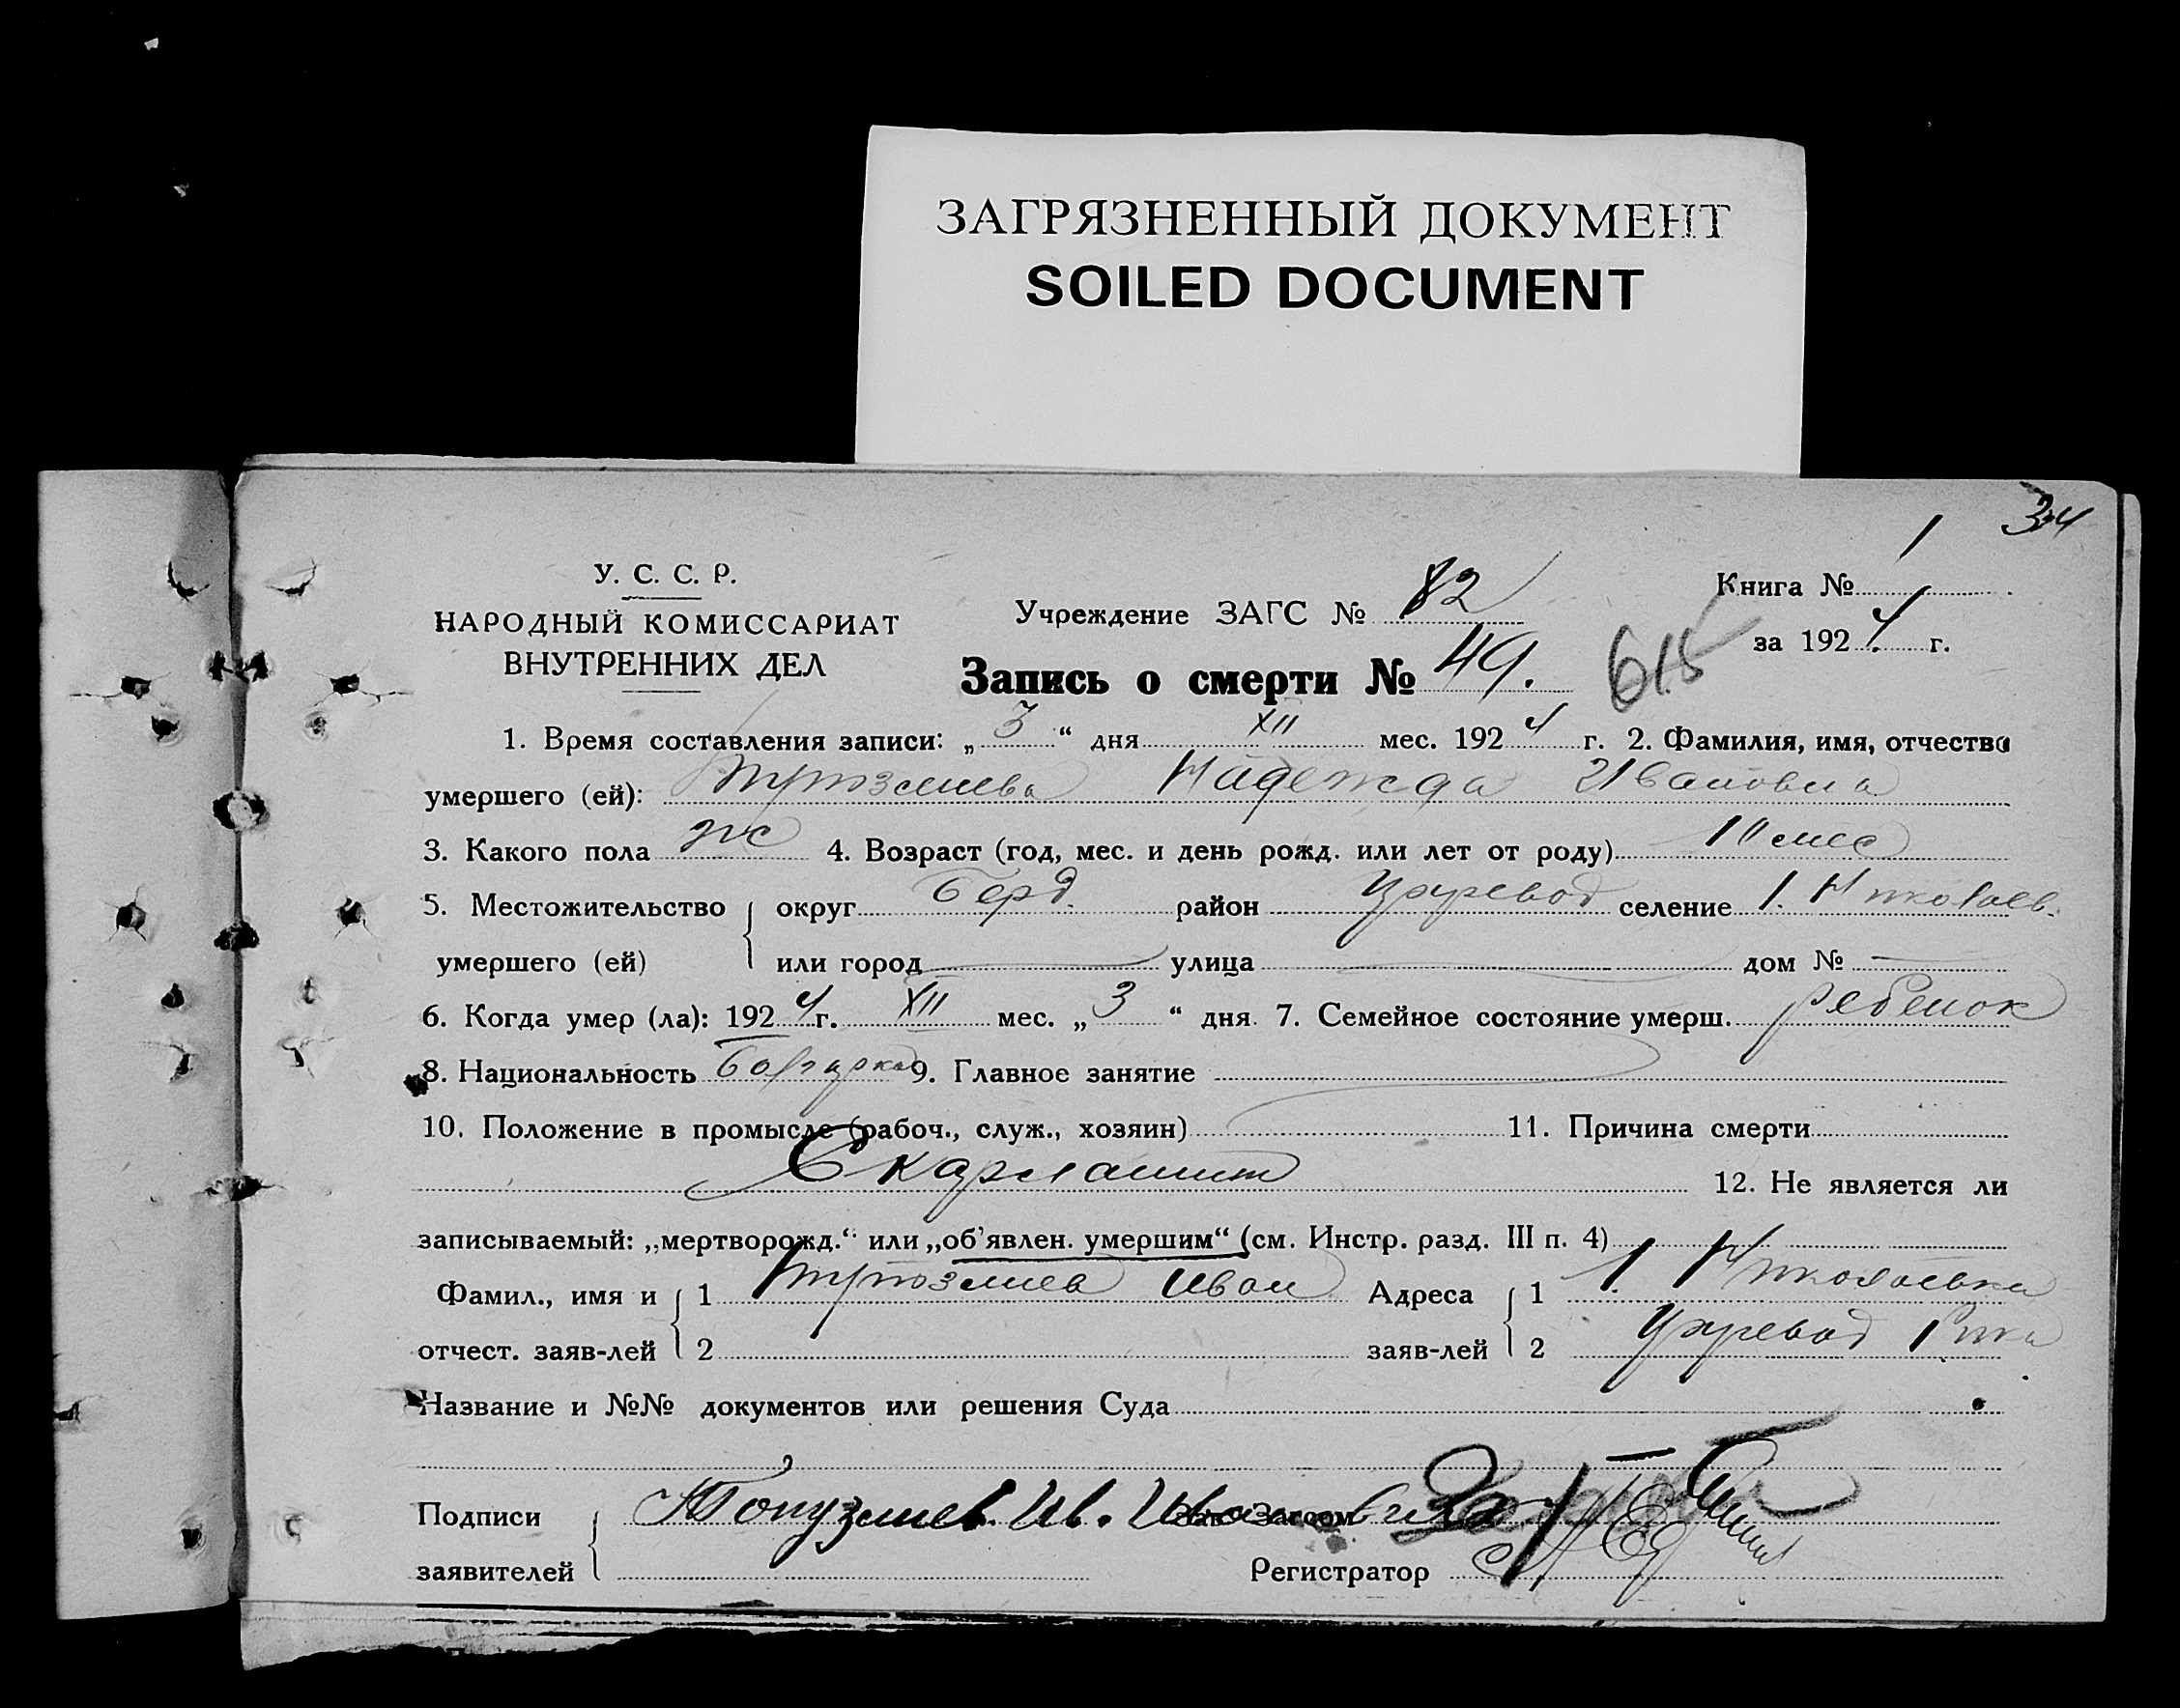 ЗАГРЯЗНЕННЫЙ ДОКУМЕНТ
SOILED DOCUMENT
34
У. С. С. Р.
НАРОДНЫЙ КОМИССАРИАТ
ВНУТРЕННИХ ДЕЛ
Учреждение ЗАГС № 82
Книга № 1
за 1924 г.
Запись о смерти № 49.
615
1. Время составления записи: „3“ дня XII мес. 1924 г. 2. Фамилия, имя, отчество
умершего (ей): Надежда Ивановна
3. Какого пола ж 4. Возраст (год, мес. и день рожд. или лет от роду) 10 мес
5. Местожительство округ Берд. район Царевод селение 1. Николаев.
умершего (ей) или город улица дом №
6. Когда умер (ла): 1924 г. XII мес. „3“ дня. 7. Семейное состояние умерш. ребенок
8. Национальность Болгарка 9. Главное занятие
10. Положение в промысле (рабоч., служ., хозяин) 11. Причина смерти
Скарлатит 12. Не является ли
записываемый: „мертворожд.“ или „об'явлен. умершим“ (см. Инстр. разд. III п. 4)
Фамил., имя и 1 Иван Адреса 1 1. Николаевка
отчест. заяв-лей 2 заяв-лей 2 Царевод
Название и №№ документов или решения Суда
Подписи Топузлиев. Ив. Зав. Загсом
заявителей Регистратор